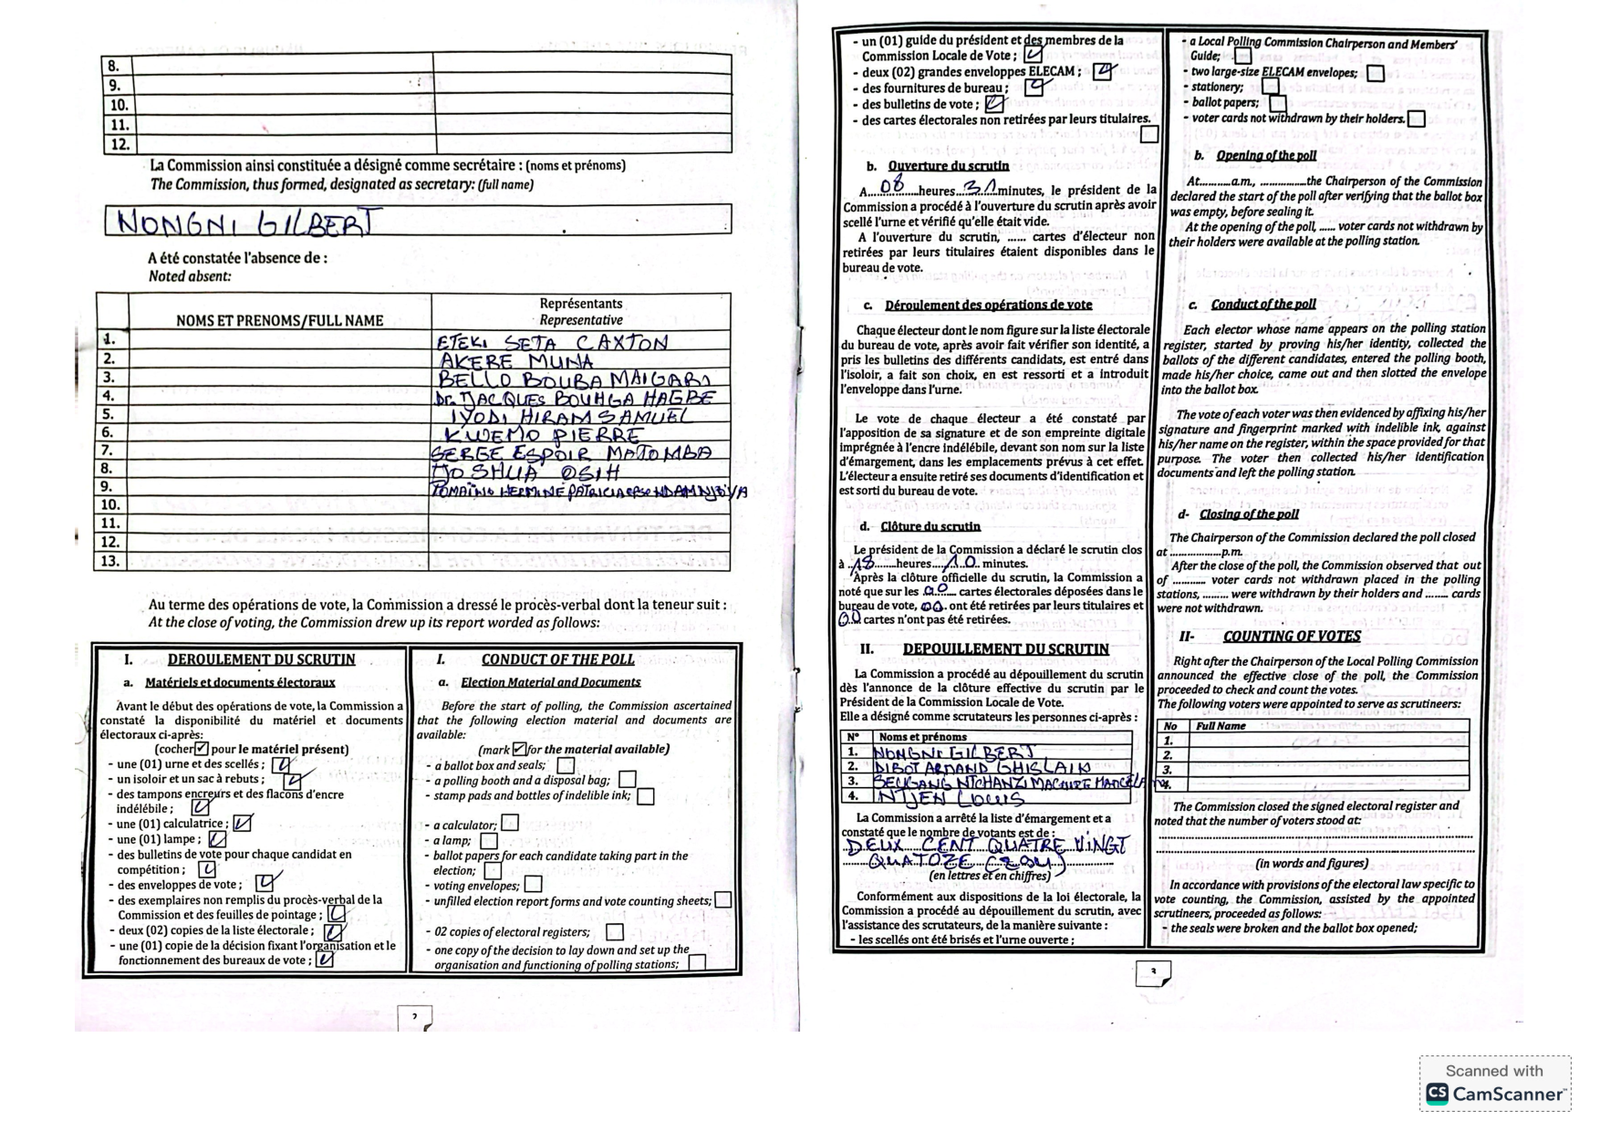 8.
9.
10.
11.
12.
La Commission ainsi constituée a désigné comme secrétaire : (noms et prénoms)
The Commission, thus formed, designated as secretary: (full name)
NONGNI GILBERT
A été constatée l'absence de :
Noted absent:
NOMS ET PRENOMS/FULL NAME
Représentants
Representative
1. ETEKI SETA CAXTON
2. AKERE MUNA
3. BELLO BOUBA MAIGARI
4. Dr. JACQUES BOUHGA HAGBE
5. IYODI HIRAM SAMUEL
6. KWEMO PIERRE
7. SERGE ESPOIR MATOMBA
8. JOSHUA OSIH
9. TOMAÏNO HERMINE PATRICIA epse NDAM NJOYA
10.
11.
12.
13.
Au terme des opérations de vote, la Commission a dressé le procès-verbal dont la teneur suit :
At the close of voting, the Commission drew up its report worded as follows:
I. DEROULEMENT DU SCRUTIN
a. Matériels et documents électoraux
Avant le début des opérations de vote, la Commission a
constaté la disponibilité du matériel et documents
électoraux ci-après:
(cocher ☑ pour le matériel présent)
- une (01) urne et des scellés ; ☑
- un isoloir et un sac à rebuts ; ☑
- des tampons encreurs et des flacons d'encre
indélébile ; ☑
- une (01) calculatrice ; ☑
- une (01) lampe ; ☑
- des bulletins de vote pour chaque candidat en
compétition ; ☑
- des enveloppes de vote ; ☑
- des exemplaires non remplis du procès-verbal de la
Commission et des feuilles de pointage ; ☑
- deux (02) copies de la liste électorale ; ☑
- une (01) copie de la décision fixant l'organisation et le
fonctionnement des bureaux de vote ; ☑
I. CONDUCT OF THE POLL
a. Election Material and Documents
Before the start of polling, the Commission ascertained
that the following election material and documents are
available:
(mark ☑ for the material available)
- a ballot box and seals; ☐
- a polling booth and a disposal bag; ☐
- stamp pads and bottles of indelible ink; ☐
- a calculator; ☐
- a lamp; ☐
- ballot papers for each candidate taking part in the
election; ☐
- voting envelopes; ☐
- unfilled election report forms and vote counting sheets; ☐
- 02 copies of electoral registers; ☐
- one copy of the decision to lay down and set up the
organisation and functioning of polling stations; ☐
2
- un (01) guide du président et des membres de la
Commission Locale de Vote ; ☑
- deux (02) grandes enveloppes ELECAM ; ☑
- des fournitures de bureau ; ☑
- des bulletins de vote ; ☑
- des cartes électorales non retirées par leurs titulaires. ☐
b. Ouverture du scrutin
A...08...heures...31 minutes, le président de la
Commission a procédé à l'ouverture du scrutin après avoir
scellé l'urne et vérifié qu'elle était vide.
A l'ouverture du scrutin, ...... cartes d'électeur non
retirées par leurs titulaires étaient disponibles dans le
bureau de vote.
c. Déroulement des opérations de vote
Chaque électeur dont le nom figure sur la liste électorale
du bureau de vote, après avoir fait vérifier son identité, a
pris les bulletins des différents candidats, est entré dans
l'isoloir, a fait son choix, en est ressorti et a introduit
l'enveloppe dans l'urne.
Le vote de chaque électeur a été constaté par
l'apposition de sa signature et de son empreinte digitale
imprégnée à l'encre indélébile, devant son nom sur la liste
d'émargement, dans les emplacements prévus à cet effet.
L'électeur a ensuite retiré ses documents d'identification et
est sorti du bureau de vote.
d. Clôture du scrutin
Le président de la Commission a déclaré le scrutin clos
à ..18......heures...10.. minutes.
Après la clôture officielle du scrutin, la Commission a
noté que sur les ..00.... cartes électorales déposées dans le
bureau de vote, 00.. ont été retirées par leurs titulaires et
00 cartes n'ont pas été retirées.
II. DEPOUILLEMENT DU SCRUTIN
La Commission a procédé au dépouillement du scrutin
dès l'annonce de la clôture effective du scrutin par le
Président de la Commission Locale de Vote.
Elle a désigné comme scrutateurs les personnes ci-après :
N° Noms et prénoms
1. NONGNI GILBERT
2. DIBOT ARMAND GHISLAIN
3. NTCHANZI
4. NTJEN LOUIS
La Commission a arrêté la liste d'émargement et a
constaté que le nombre de votants est de :
DEUX CENT QUATRE VINGT
QUATOZE (294)
(en lettres et en chiffres)
Conformément aux dispositions de la loi électorale, la
Commission a procédé au dépouillement du scrutin, avec
l'assistance des scrutateurs, de la manière suivante :
- les scellés ont été brisés et l'urne ouverte ;
- a Local Polling Commission Chairperson and Members'
Guide; ☐
- two large-size ELECAM envelopes; ☐
- stationery; ☐
- ballot papers; ☐
- voter cards not withdrawn by their holders. ☐
b. Opening of the poll
At..........a.m., ..............the Chairperson of the Commission
declared the start of the poll after verifying that the ballot box
was empty, before sealing it.
At the opening of the poll, ...... voter cards not withdrawn by
their holders were available at the polling station.
c. Conduct of the poll
Each elector whose name appears on the polling station
register, started by proving his/her identity, collected the
ballots of the different candidates, entered the polling booth,
made his/her choice, came out and then slotted the envelope
into the ballot box.
The vote of each voter was then evidenced by affixing his/her
signature and fingerprint marked with indelible ink, against
his/her name on the register, within the space provided for that
purpose. The voter then collected his/her identification
documents and left the polling station.
d- Closing of the poll
The Chairperson of the Commission declared the poll closed
at ..................p.m.
After the close of the poll, the Commission observed that out
of ........... voter cards not withdrawn placed in the polling
stations, ......... were withdrawn by their holders and ........ cards
were not withdrawn.
II- COUNTING OF VOTES
Right after the Chairperson of the Local Polling Commission
announced the effective close of the poll, the Commission
proceeded to check and count the votes.
The following voters were appointed to serve as scrutineers:
No Full Name
1.
2.
3.
4.
The Commission closed the signed electoral register and
noted that the number of voters stood at:
(in words and figures)
In accordance with provisions of the electoral law specific to
vote counting, the Commission, assisted by the appointed
scrutineers, proceeded as follows:
- the seals were broken and the ballot box opened;
3
Scanned with
CS CamScanner